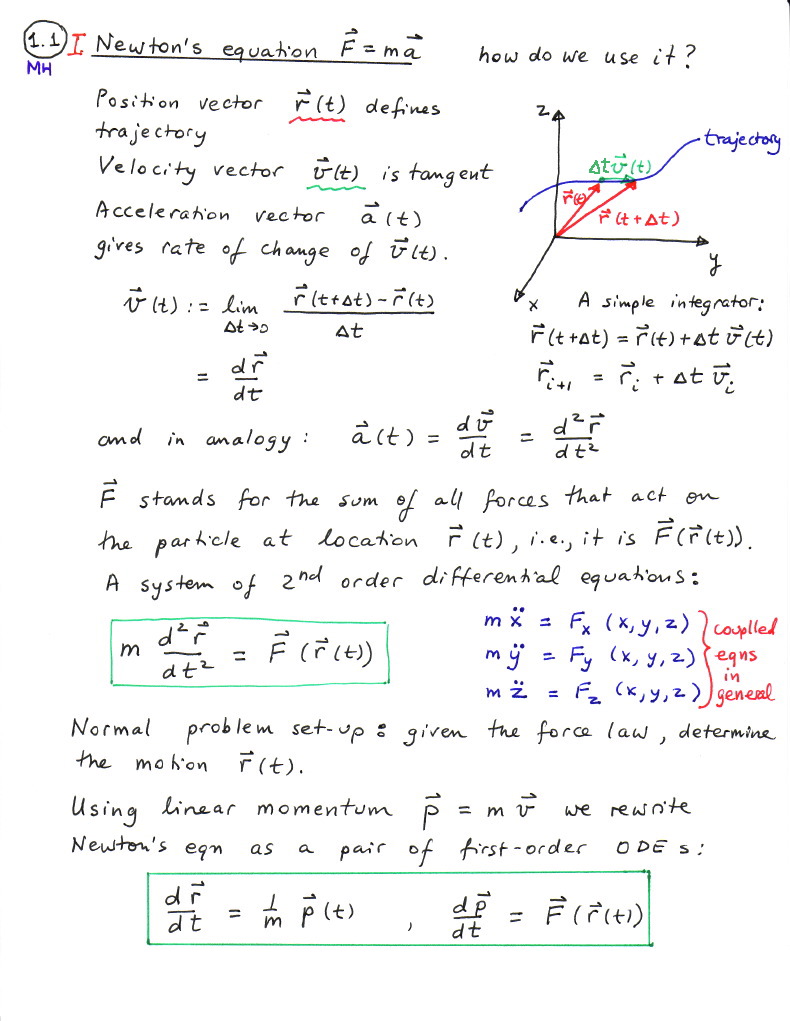 1.1 I Newton's equation F⃗ = ma⃗ how do we use it?
MH
Position vector r⃗(t) defines
trajectory
Velocity vector v⃗(t) is tangent
Acceleration vector a⃗(t)
gives rate of change of v⃗(t).
z
trajectory
Δt v⃗(t)
r⃗(t)
r⃗(t+Δt)
y
x
v⃗(t) := lim Δt→0 (r⃗(t+Δt) − r⃗(t)) / Δt
= dr⃗/dt
A simple integrator:
r⃗(t+Δt) = r⃗(t) + Δt v⃗(t)
r⃗ᵢ₊₁ = r⃗ᵢ + Δt v⃗ᵢ
and in analogy: a⃗(t) = dv⃗/dt = d²r⃗/dt²
F⃗ stands for the sum of all forces that act on
the particle at location r⃗(t), i.e., it is F⃗(r⃗(t)).
A system of 2nd order differential equations:
m d²r⃗/dt² = F⃗(r⃗(t))
m ẍ = Fx (x,y,z)
m ÿ = Fy (x,y,z)
m z̈ = Fz (x,y,z)
couplled
eqns
in
general
Normal problem set-up: given the force law, determine
the motion r⃗(t).
Using linear momentum p⃗ = m v⃗ we rewrite
Newton's eqn as a pair of first-order ODEs:
dr⃗/dt = 1/m p⃗(t) , dp⃗/dt = F⃗(r⃗(t))